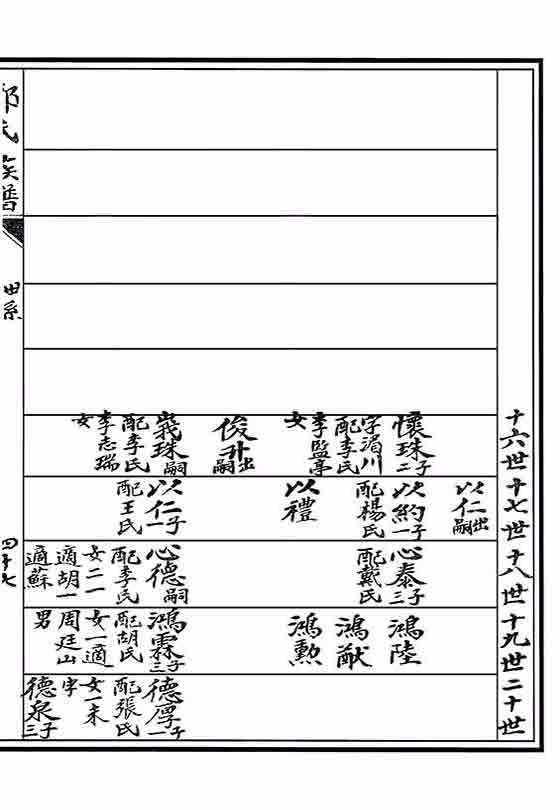 十六世
十七世
十八世
十九世
二十世
懷珠二子
字湄川
配李氏
李監亭
女
俊升出嗣
峩珠嗣
配李氏
李志瑞
女
以仁出嗣
以約一子
配楊氏
以禮
以仁一子
配王氏
心泰三子
配戴氏
心德嗣
配李氏
女二一
適胡一
適蘇
鴻陸
鴻猷
鴻勲
鴻霖三子
配胡氏
女一適
周廷山
男
德厚一子
配張氏
女一未
字
德泉三子
氏族譜
世系
四十七